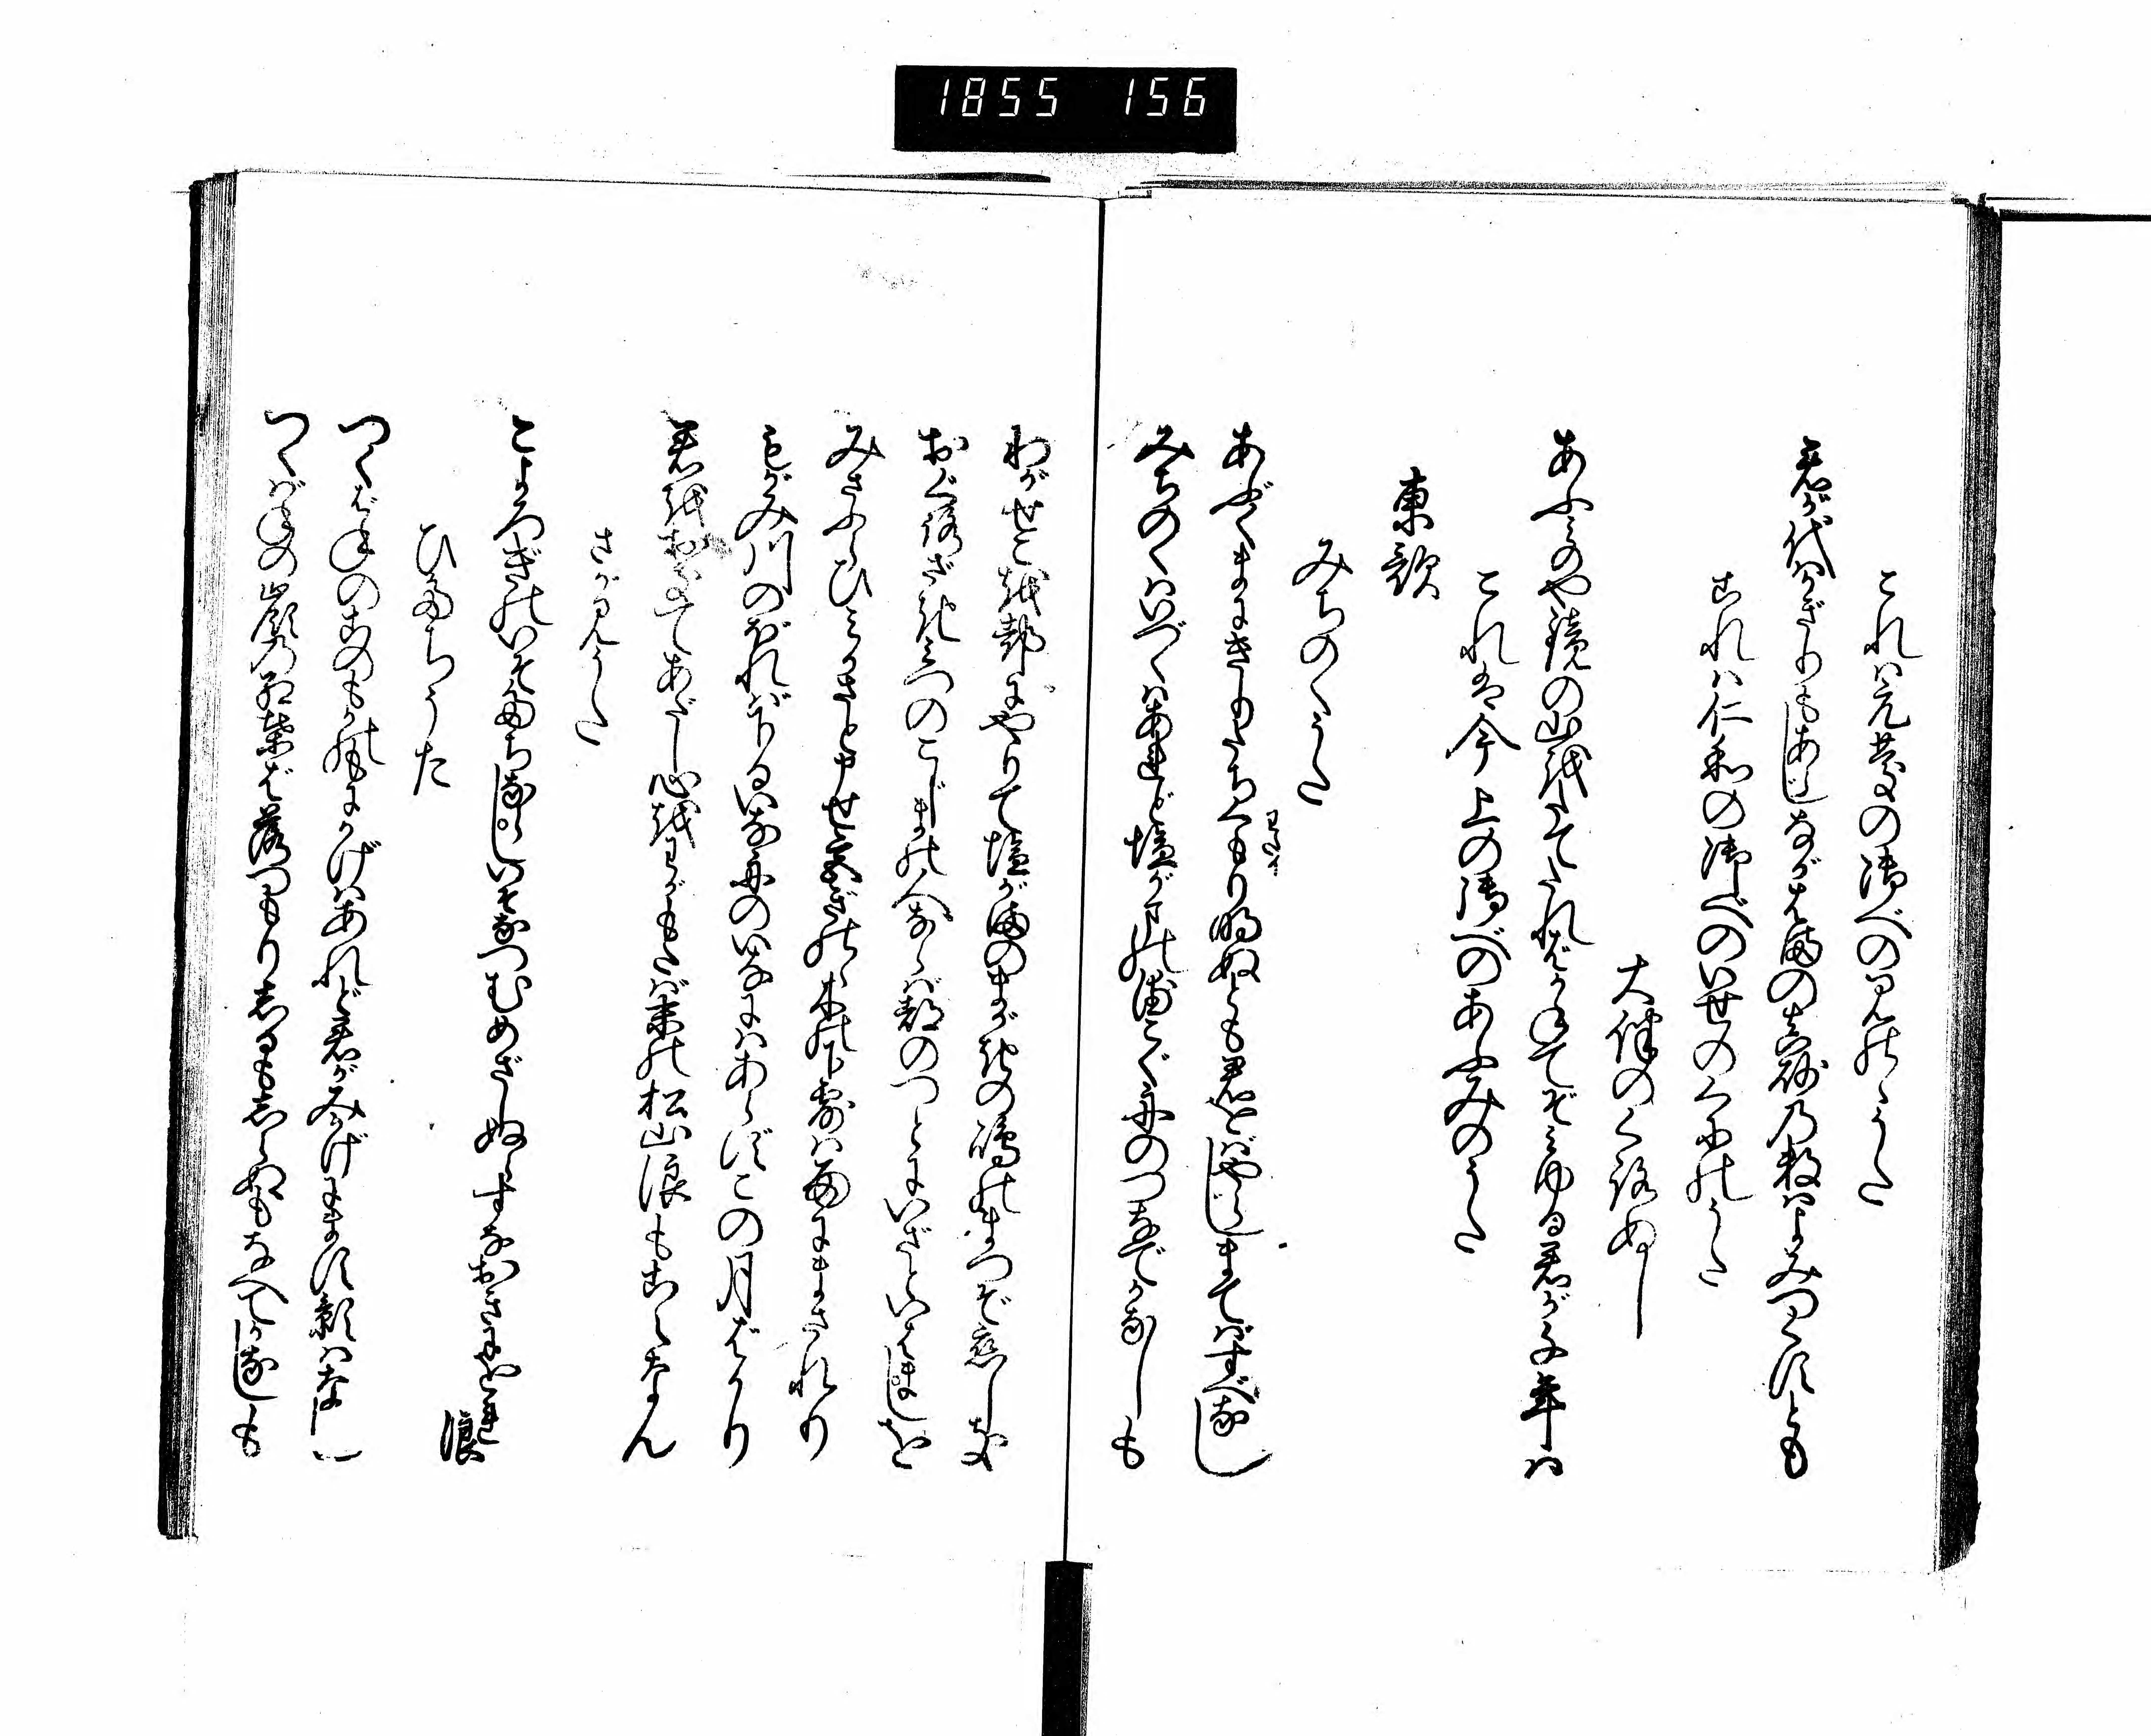 1855 156
これハ元慶の御べのみのゝうた
君が代ハかぎりもあらじながはまの真砂乃数ハよみつくすとも
これハ仁和の御べのいせのくにのうた
大伴のくろぬし
あふみのや鏡の山をたてたれバかねてぞみゆる君が千年ハ
これハ今上の御べのあふみのうた
東歌
みちのくうた
あぶくまにきりたちくもり明ぬとも君をバやらじまてバすべなし
わたり
みちのくハいづくハあれど塩がまの浦こぐ舟のつなでかなしも
わがせこを都にやりて塩がまのまがきの嶋のまつぞ恋しき
おぐろざきみつのこじまの人ならバ都のつとにいざといはましを
みさふらひみかさと申せ宮ぎのゝ木の下露ハ雨にまされり
もがみ川のぼれバ下るいな舟のいなにハあらずこの月ばかり
君をおきてあだし心をわがもたバ末の松山浪もこえなん
さがみうた
こよろぎのいそたちならしいそなつむめざしぬらすなおきにをれ浪
ひたちうた
つくばねのこのもかのもにかげハあれど君がみかげにます影ハなし
つくバねの峯の紅葉ば落つもりしるもしらぬもなべてかなしも